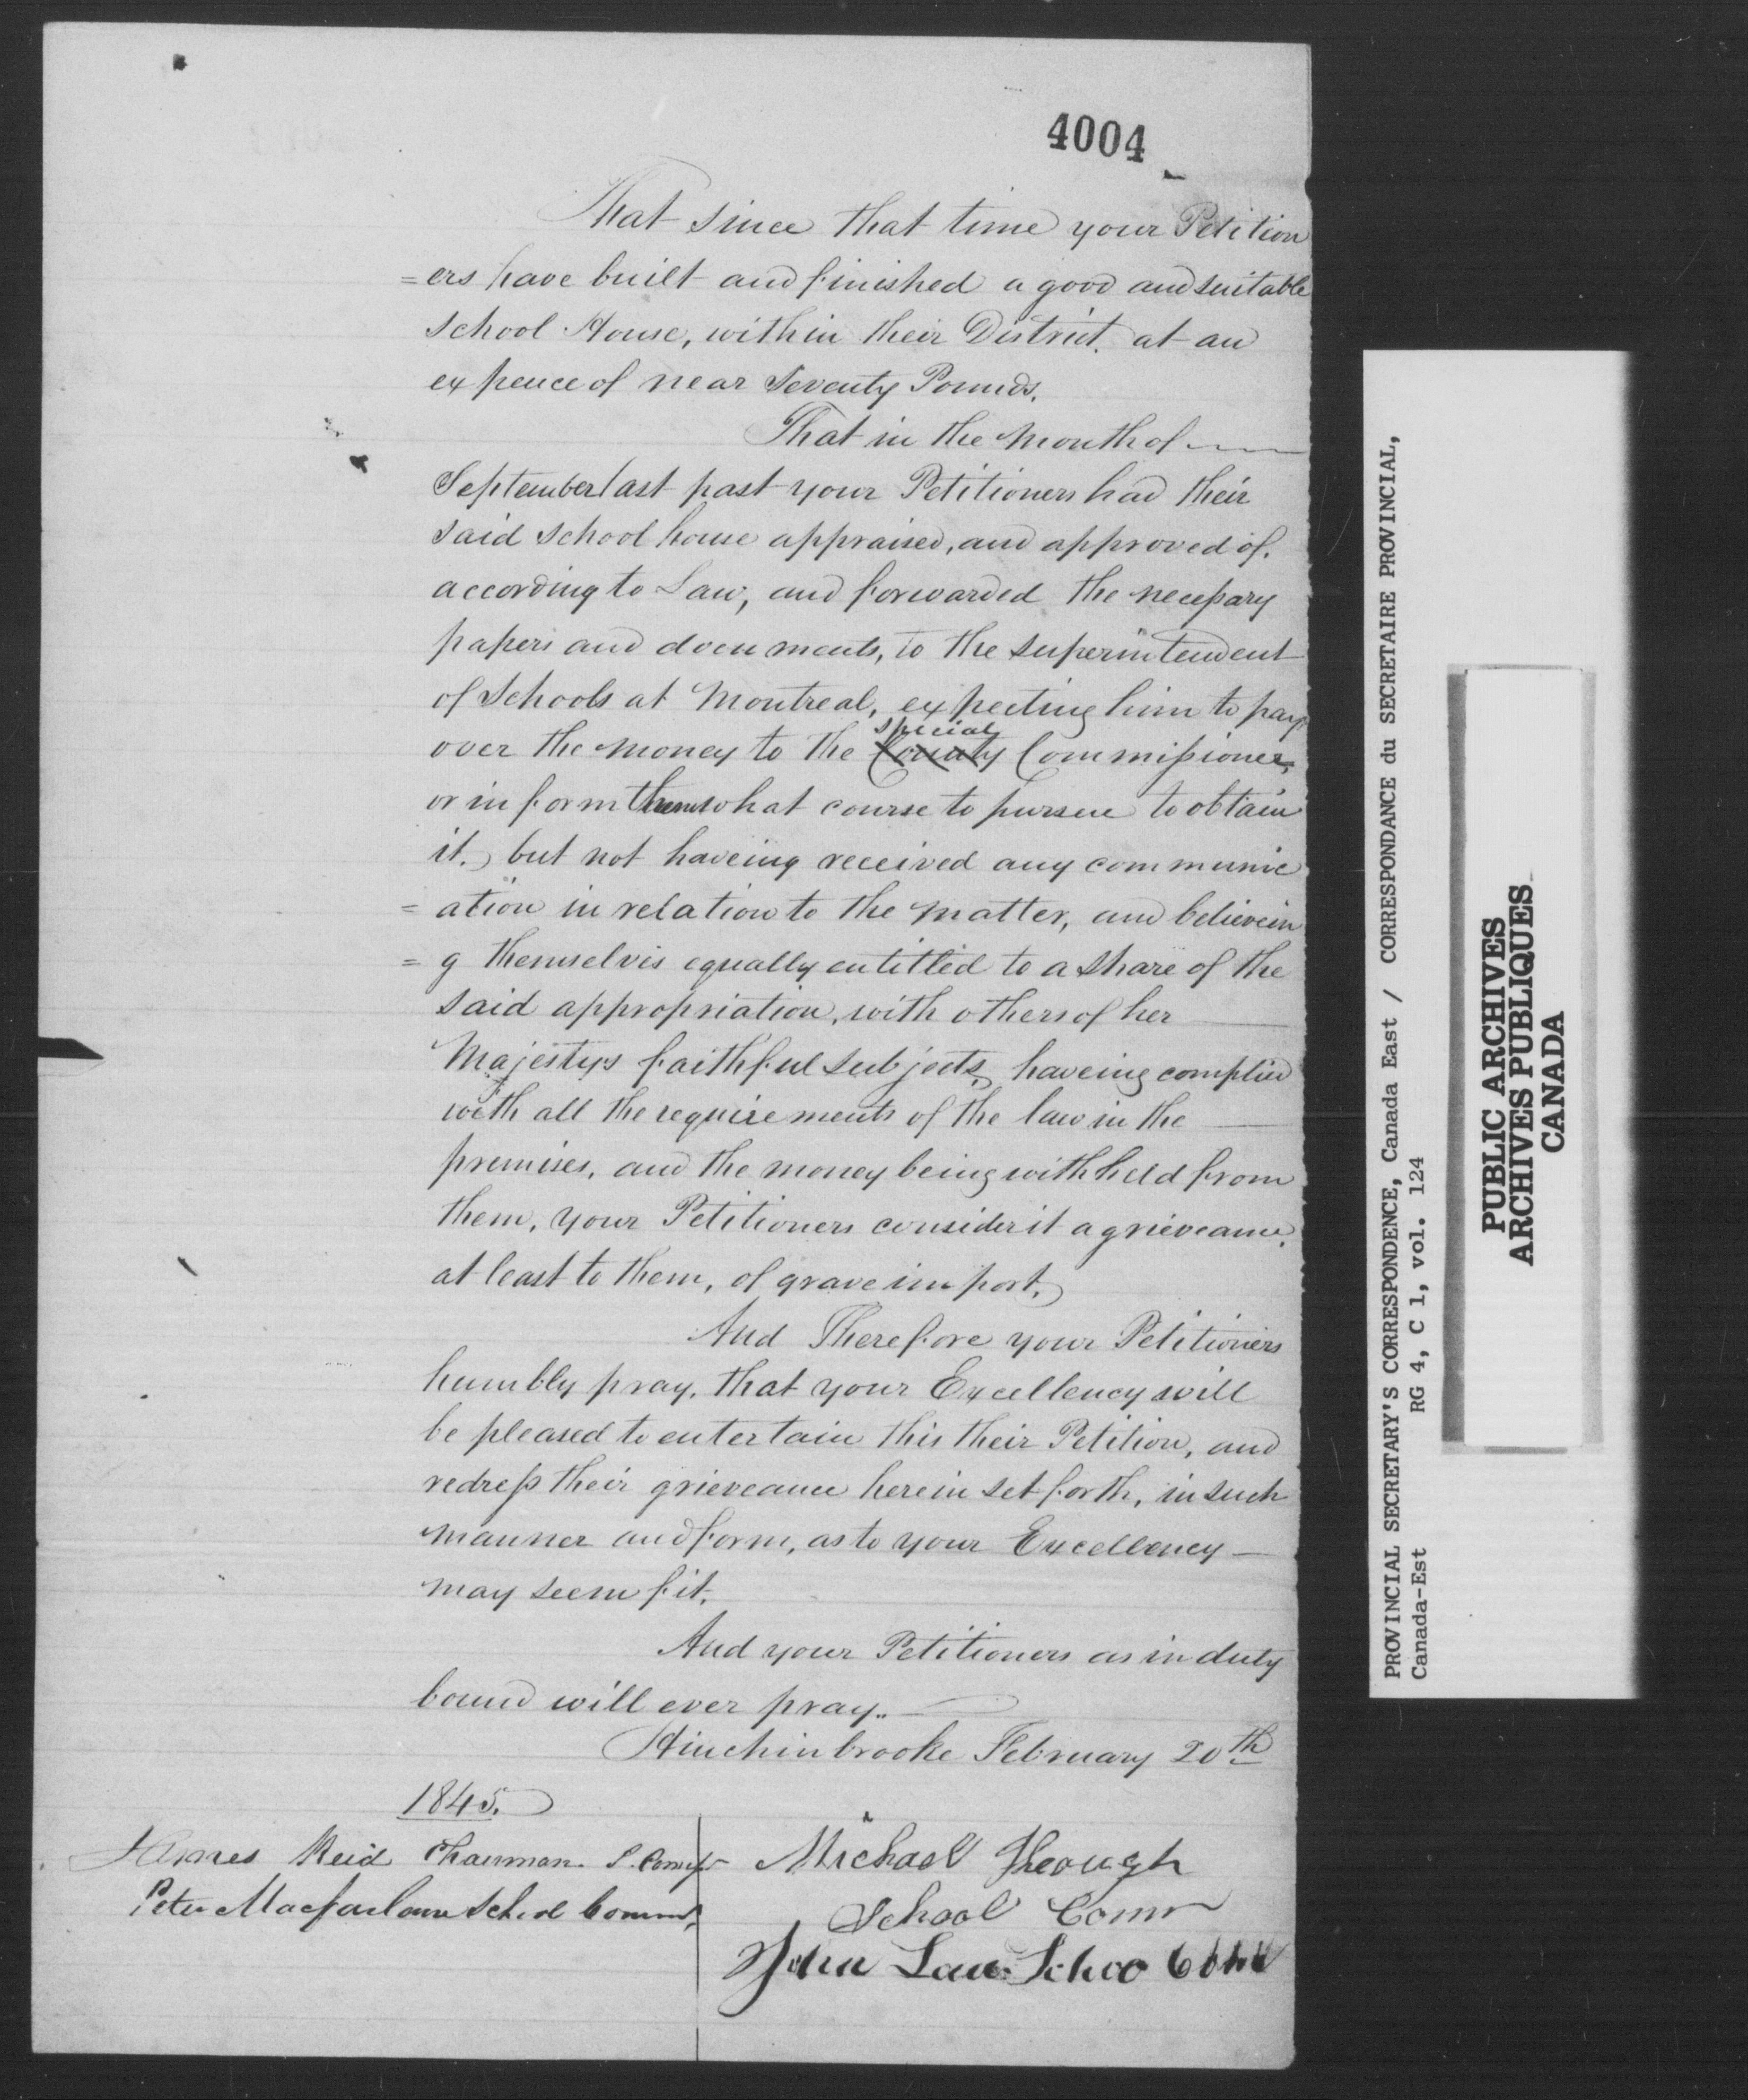 4004
That since that time your Petition
=ers have built and finished a good and suitable
School House, within their District, at an
expence of near Seventy Pounds.
That in the Month of
September last past your Petitioners had their
said School house appraised, and approved of,
according to Law, and forwarded the necessary
papers and documents, to the Superintendent
of Schools at Montreal, expecting him to pay
special
over the money to the County Commissioner,
or inform them what course to pursue to obtain
it, but not haveing received any communic
=ation in relation to the matter, and believein
=g themselvis equally entitled to a share of the
said appropriation, with others of her
Majestys faithful subjects, haveing complied
with all the requirements of the law in the
premises, and the money being withheld from
them, your Petitioners consider it a grieveance,
at least to them, of grave import,
And Therefore your Petitioners
humbly pray, that your Excellency will
be pleased to entertain this their Petition, and
redress their grieveance herein set forth, in such
manner and form, as to your Excellency
may seem fit.
And your Petitioners as in duty
bound will ever pray..
Hinchinbrooke February 20th
1845.
James Reid Chairman S.
Peter Macfarlane School
Michael Keough
School Comr
John Law Schoo
PROVINCIAL SECRETARY'S CORRESPONDENCE, Canada East / CORRESPONDANCE du SECRETAIRE PROVINCIAL,
Canada-Est RG 4, C 1, vol. 124
PUBLIC ARCHIVES
ARCHIVES PUBLIQUES
CANADA